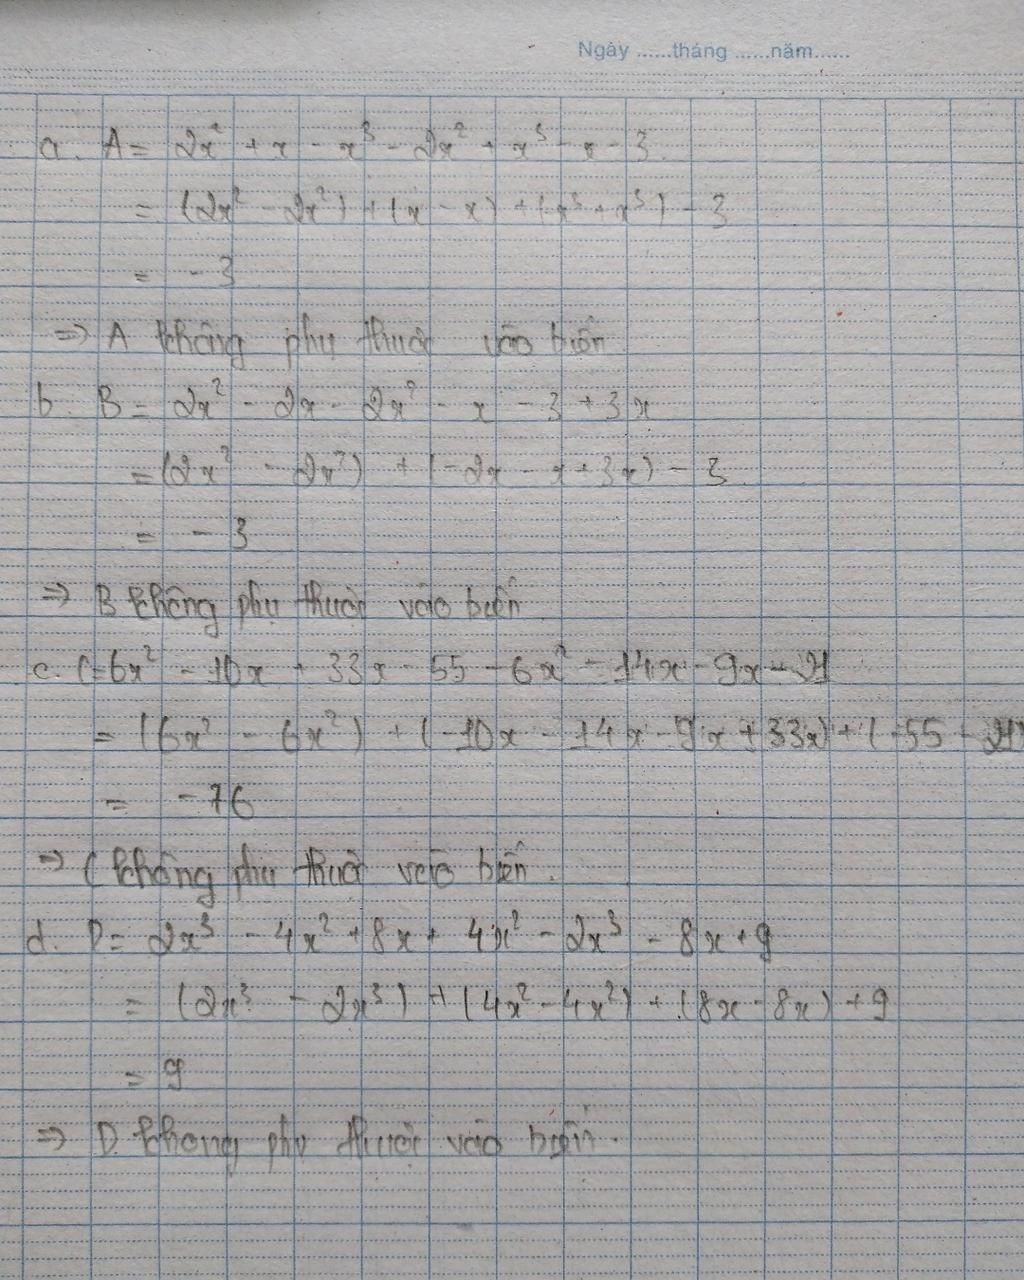 Ngày ......tháng ......năm......
a. A = 2x² + x - x³ - 2x² + x³ - x - 3.
= (2x² - 2x²) + (x - x) + (-x³ + x³) - 3
= -3
=> A không phụ thuộc vào biến
b. B = 2x² - 2x - 2x² - x - 3 + 3x
= (2x² - 2x²) + (-2x - x + 3x) - 3
= -3
=> B không phụ thuộc vào biến
c. C = 6x² - 10x + 33x - 55 - 6x² - 14x - 9x - 21
= (6x² - 6x²) + (-10x - 14x - 9x + 33x) + (-55 - 21)
= -76
=> C không phụ thuộc vào biến.
d. D = 2x³ - 4x² + 8x + 4x² - 2x³ - 8x + 9
= (2x³ - 2x³) + (4x² - 4x²) + (8x - 8x) + 9
= 9
=> D không phụ thuộc vào biến.